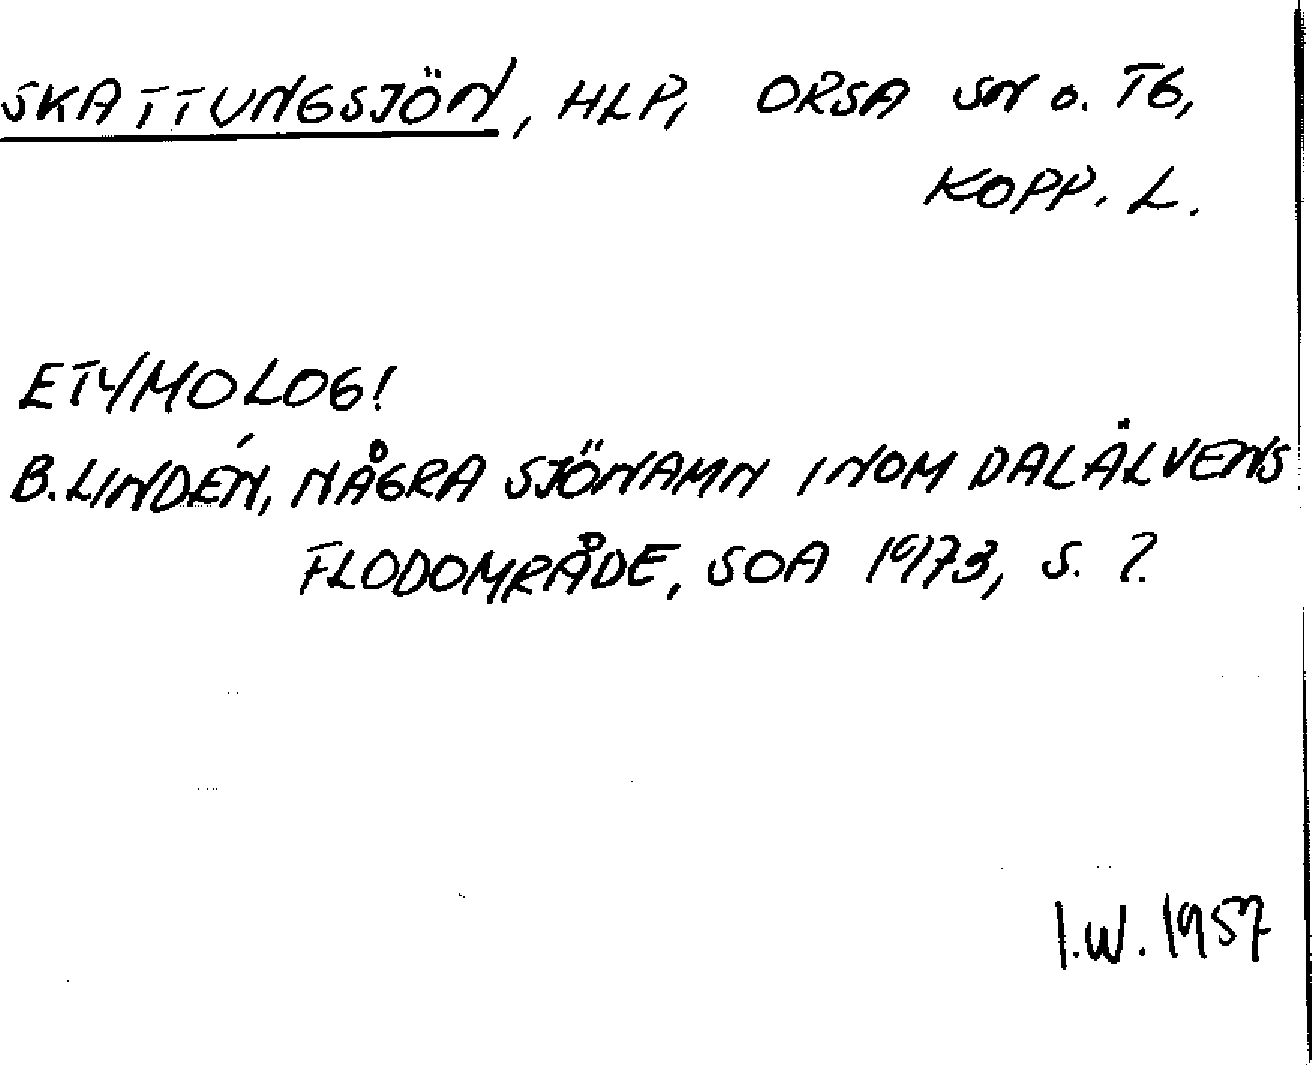 SKATTUNGSJÖN, HLP, ORSA SN O. TG,
KOPP. L.
ETYMOLOGI
B. LINDÉN, NÅGRA SJÖNAMN INOM DALÄLVENS
FLODOMRÅDE, SOA 1973, S. ?
I.W. 1957